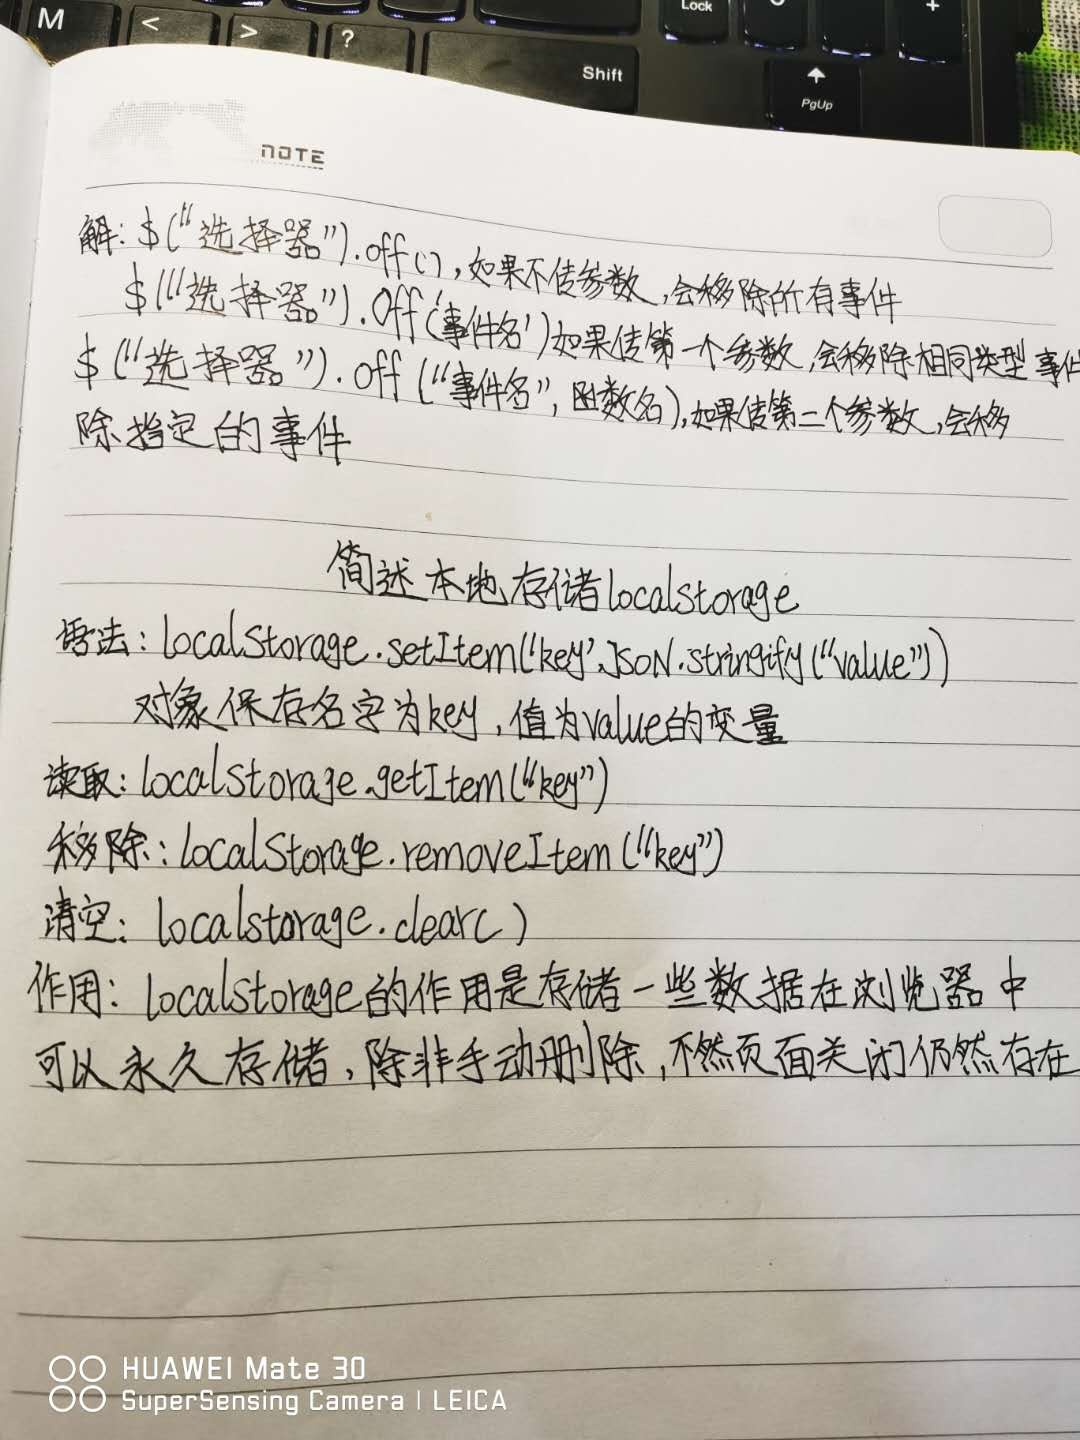 M < > ? Shift Lock + PgUp
NOTE
解: $("选择器").off(), 如果不传参数, 会移除所有事件
$("选择器").off('事件名')如果传第一个参数, 会移除相同类型事件
$("选择器").off("事件名", 函数名), 如果传第二个参数, 会移
除指定的事件
简述本地存储localstorage
语法: localStorage.setItem("key",JSON.stringify("value"))
对象保存名字为key, 值为value的变量
读取: localstorage.getItem("key")
移除: localStorage.removeItem("key")
清空: localstorage.clear()
作用: localstorage的作用是存储一些数据在浏览器中
可以永久存储, 除非手动删除, 不然页面关闭仍然存在
HUAWEI Mate 30
SuperSensing Camera | LEICA